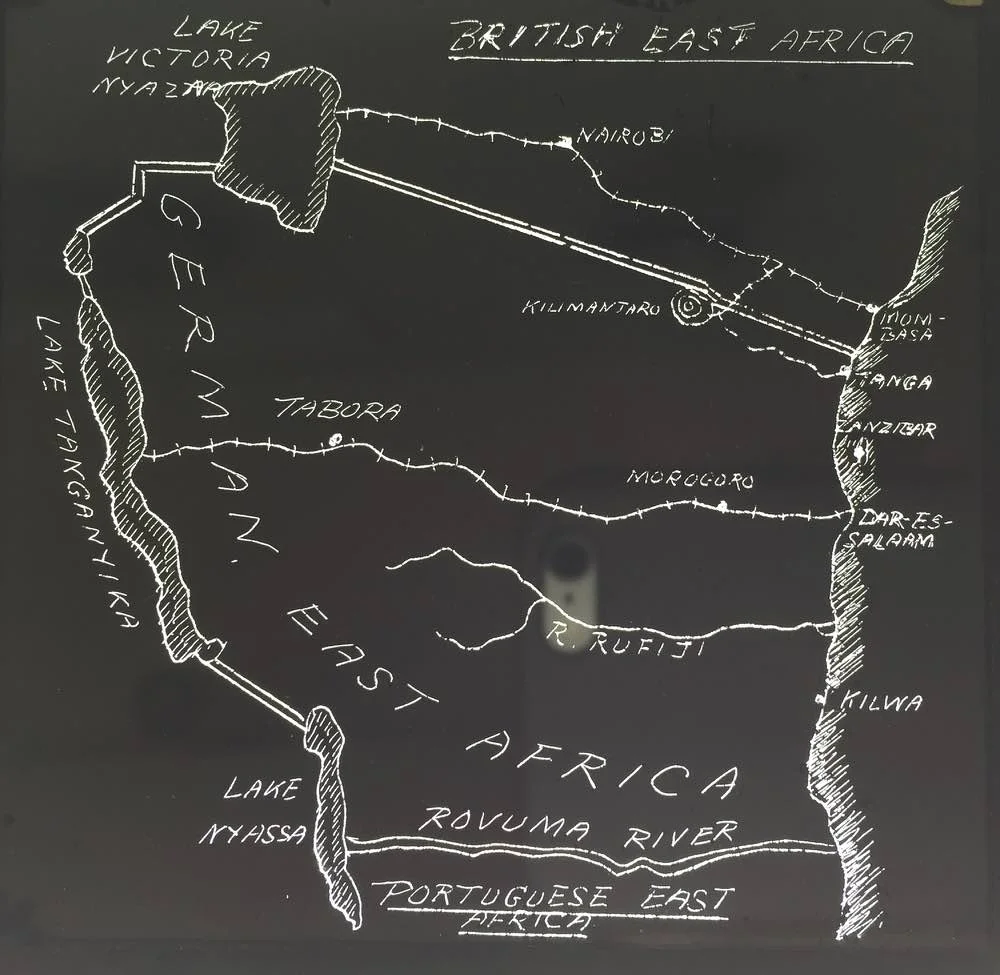 BRITISH EAST AFRICA
LAKE
VICTORIA
NYAZNA
NAIROBI
KILIMANTARO
MOM-
BASA
TANGA
ZANZIBAR
LAKE TANGANYIKA
TABORA
MOROGORO
DAR-ES-
SALAAM
GERMAN EAST AFRICA
R. RUFIJI
KILWA
LAKE
NYASSA
ROVUMA RIVER
PORTUGUESE EAST
AFRICA